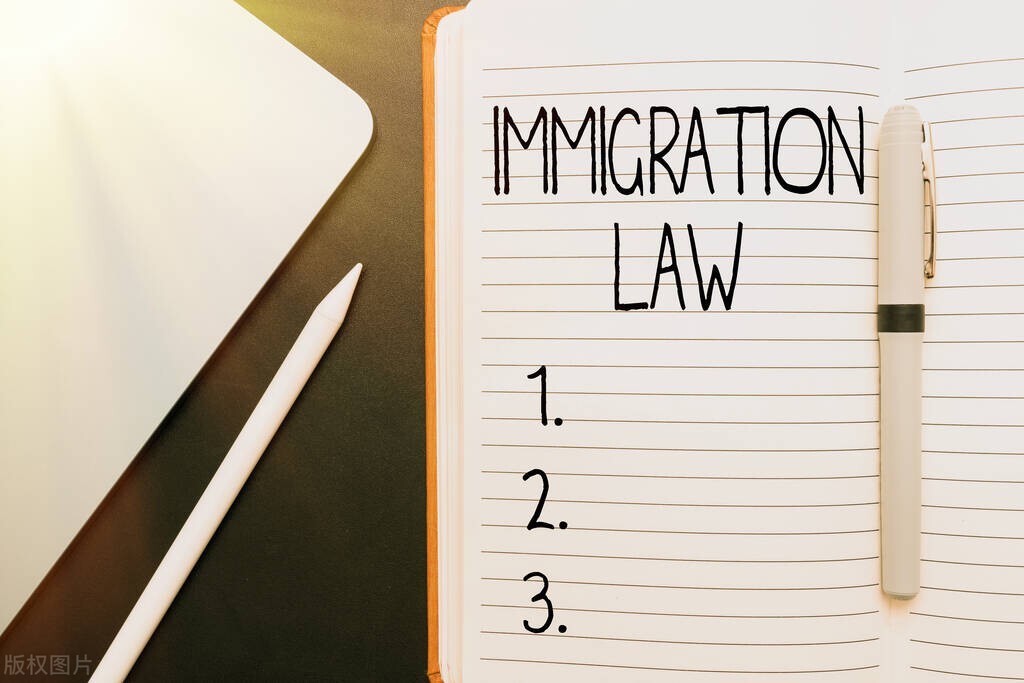 IMMIGRATION
LAW
1.
2.
3.
版权图片